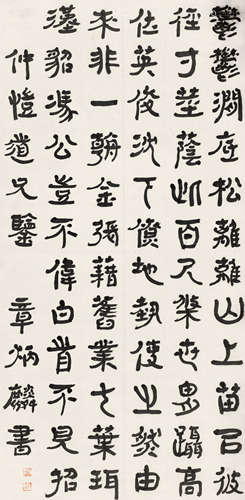 鬱鬱澗底松離離山上苗㠯彼
徑寸莖蔭此百尺條世冑躡高
位英俊沈下僚地埶使之然由
來非一朝金張藉舊業七葉珥
漢貂馮公豈不偉白首不見招
仲愷道兄鑒 章炳麟書